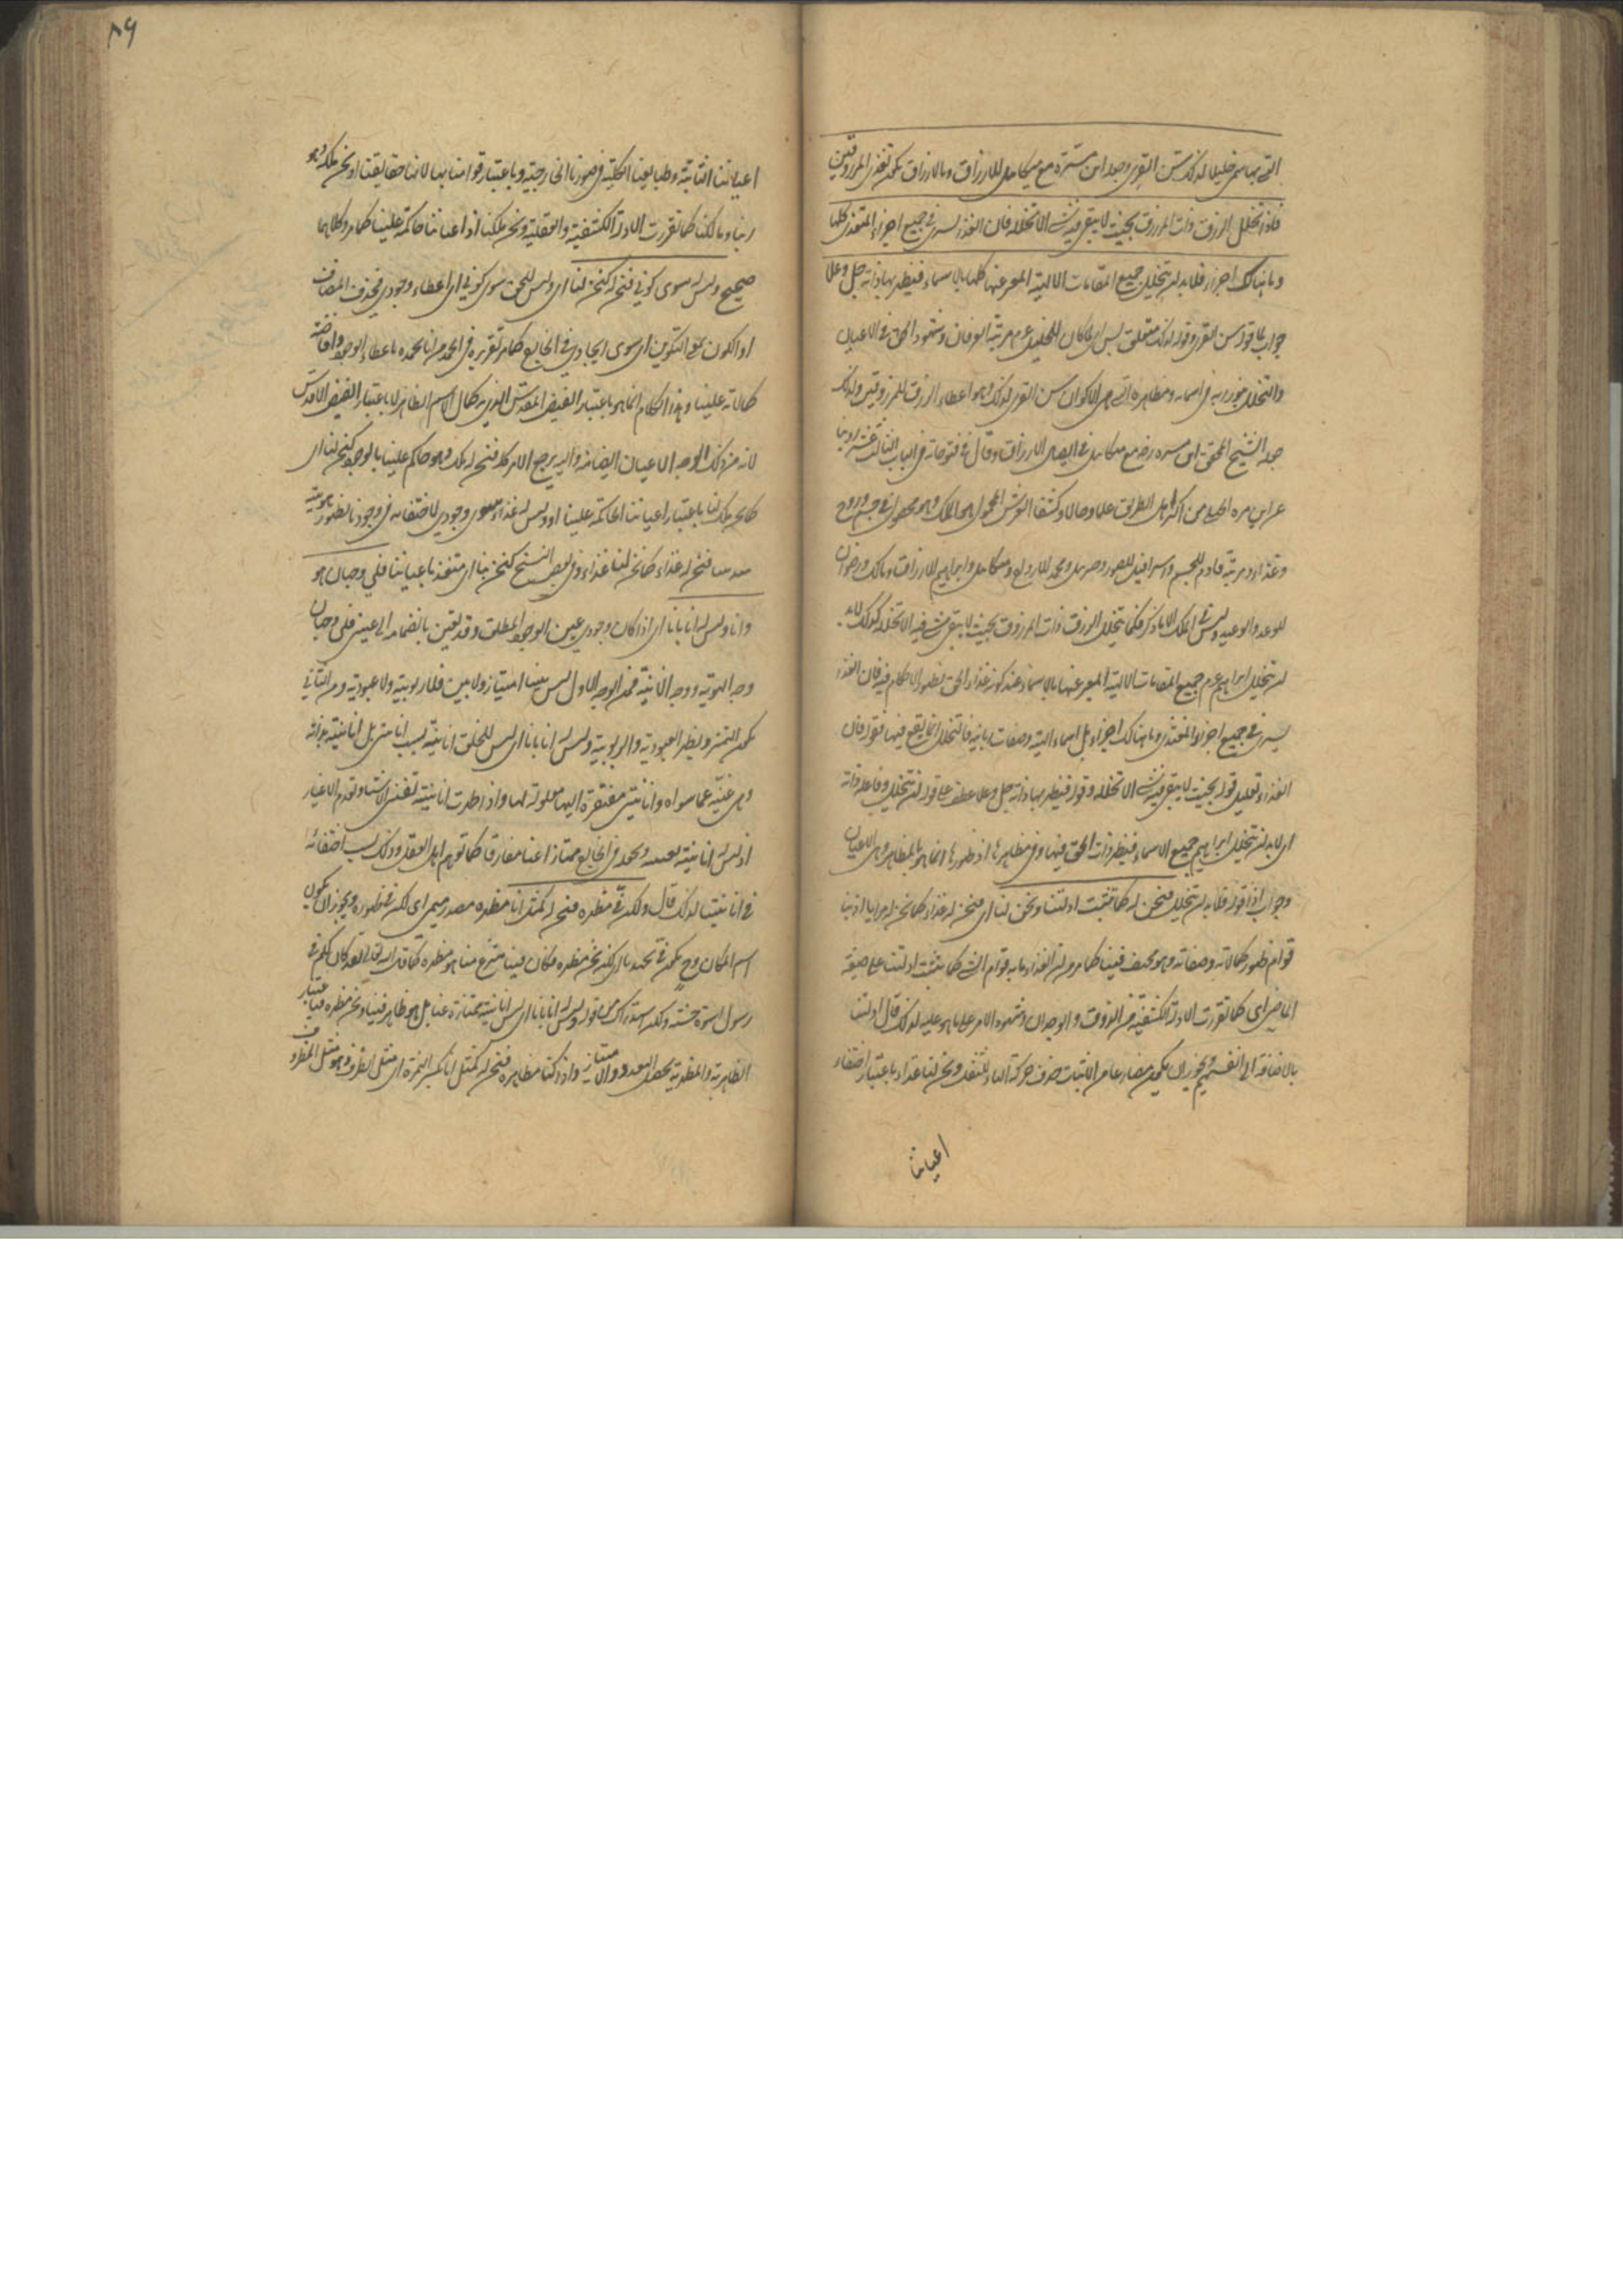 التي بها سمي خليلا لذلك سن القرى وجعله ابن مسرة مع ميكائيل للارزاق وبالارزاق يكون تغذي المرزوقين
فاذا تخلل الرزق ذات المرزوق بحيث لا يبقى فيه شيء الا تخلله فان الغذاء يسري في جميع اجزاء المتغذي كلها
وما هنالك اجزاء فلا بد ان يتخلل جميع المقامات الالهية المعبر عنها كلها بالاسماء فيظهر بها ذاته جل وعلا
جواب لما قوله سن القرى وقوله لذلك متعلق بسن اي لما كان للخليل عم مرتبة العرفان وشهود الحق في الاعيان
والتخلل بنور ربه في اسمائه ومظاهره التي هي الاكوان سن القرى لذلك وهو اعطاء الرزق للمرزوقين ولذلك
جعله الشيخ المحقق ابن مسره رضع مع ميكائيل في ايصال الارزاق وقال في فتوحاته في الباب الثالث عشر روينا
عن ابن مسره الجبلي من اكبر اهل الطريق علما وحالا وكشفا العرش المحمول هو الملك وهو محصور في جسم وروح
وغذاء ومرتبة فادم للجسم واسرافيل للصور وجبرئيل ومحمد للارواح وميكائيل وابراهيم للارزاق ومالك ورضوان
للوعد والوعيد وليس في الملك الا ما ذكر فكما يتخلل الرزق ذات المرزوق بحيث لا يبقى شيء فيه الا تخلله كذلك لا بد
ان يتخلل ابراهيم عم جميع المقامات الالهية المعبر عنها بالاسماء عند كونه غذاء الحق بظهور الاحكام فيه فان الغذاء
يسري في جميع اجزاء المغتذي وما هنالك اجزاء بل اسماء الهية وصفات ربانية فالتخلل انما يقع فيها فقوله فان
الغذاء تعليل قوله بحيث لا يبقى فيه شيء الا تخلله وقوله فيظهر بها ذاته جل وعلا عطف على قوله ان يتخلل وفاعله ذاته
اي لا بد ان يتخلل ابراهيم جميع الاسماء فيظهر ذات الحق فيها وفي مظاهرها اذ ظهورها انما هو بالمظاهر وهي الاعيان
وجواب اذا قوله فلا بد ان يتخلل فنحن له كما ثبتت ادلتنا ونحن لنا اي فنحن له غذاء كما نحن له مرايا اذ بنا
قوام ظهور كمالاته وصفاته وهو مختف فينا كما مر من ان الغذاء ما به قوام الشيء كما ثبتت ادلتنا على صيغة
الماضي اي كما تقررت الادلة الكشفية من الذوق والوجدان وشهود الامر على ما هو عليه لذلك قال ادلتنا
بالاضافة الى انفسهم ويجوز ان يكون مضارعا من الاثبات حذف حركة التاء للثقل ونحن لنا غذاء باعتبار اختفاء
اعياننا
٨٩
اعياننا الثابتة وطبايعنا الكلية في صورنا الخارجية وباعتبار قوامنا بها لانها حقايقنا او نحن ملك وهو
ربنا ومالكنا كما تقررت الادلة الكشفية والعقلية ونحن ملكنا اذ اعياننا حاكمة علينا كما مر وكلاهما
صحيح وليس له سوى كوني فنحن له كنحن لنا اي وليس للحق سوى كوني اي اعطاء وجودي فحذف المضاف
او الكون بمعنى التكوين اي سوى ايجادي في الخارج كما مر تقريره في الحمد من انا نحمده باعطاء الوجود وافاضة
كمالاته علينا وهذا الكلام انما هو باعتبار الفيض المقدس الذي به كمال الاسم الظاهر لا باعتبار الفيض الاقدس
لانه من ذلك الوجه الاعيان ايضا منه واليه يرجع الامر كله فنحن له ملك وهو حاكم علينا بالوجود كنحن لنا اي
كما نحن ملك لنا باعتبار اعياننا الحاكمة علينا او وليس له غذاء سوى وجودي لاختفائه في وجودنا بظهور هويته
فنحن له غذاء كما نحن لنا غذاء وفي بعض النسخ كنحن بنا اي متغذ باعياننا فلي وجهان هو
وانا وليس له انا بانا اي اذا كان وجودي عين الوجود المطلق وقد تعين بانضمامه الى عيني فلي وجهان
وجه الهوية ووجه الانانية فمن الوجه الاول ليس بيننا امتياز ولا بين فلا ربوبية ولا عبودية ومن الثاني
يكون التميز ويظهر العبودية والربوبية وليس له انا بانا اي ليس للخلق انانية بسبب انانيتي بل انانيته بذاته
وهي غنية عما سواه وانانيتي مفتقرة اليها معلولة لها واذا ظهرت انانيته تفنى الاشياء وتعدم الاغيار
اذ ليس له انانية في الخارج ممتازا عنا مفارقا كما توهم اهل العقل وذلك بسبب اختفائه
في انانيتنا لذلك قال ولكن في مظهره فنحن له كمثل انا مظهره مصدر ميمي اي لكن في ظهوره ويجوز ان يكون
اسم المكان وح يكون في تجريديا اي لكنه نحن مظهره فكان فينا منتزع منا هو مظهره كما قال الله تعالى لقد كان لكم في
رسول الله اسوة حسنة ولكن استدراك من قوله وليس له انا بانا اي ليس له انانية ممتازة عنا بل هو ظاهر فينا ونحن مظهره فباعتبار
الظاهرية والمظهرية يحصل التعدد والامتياز واذا كنا مظاهره فنحن له كمثل انا بكسر الهمزة اي مثل الظرف وهو مثل المظروف